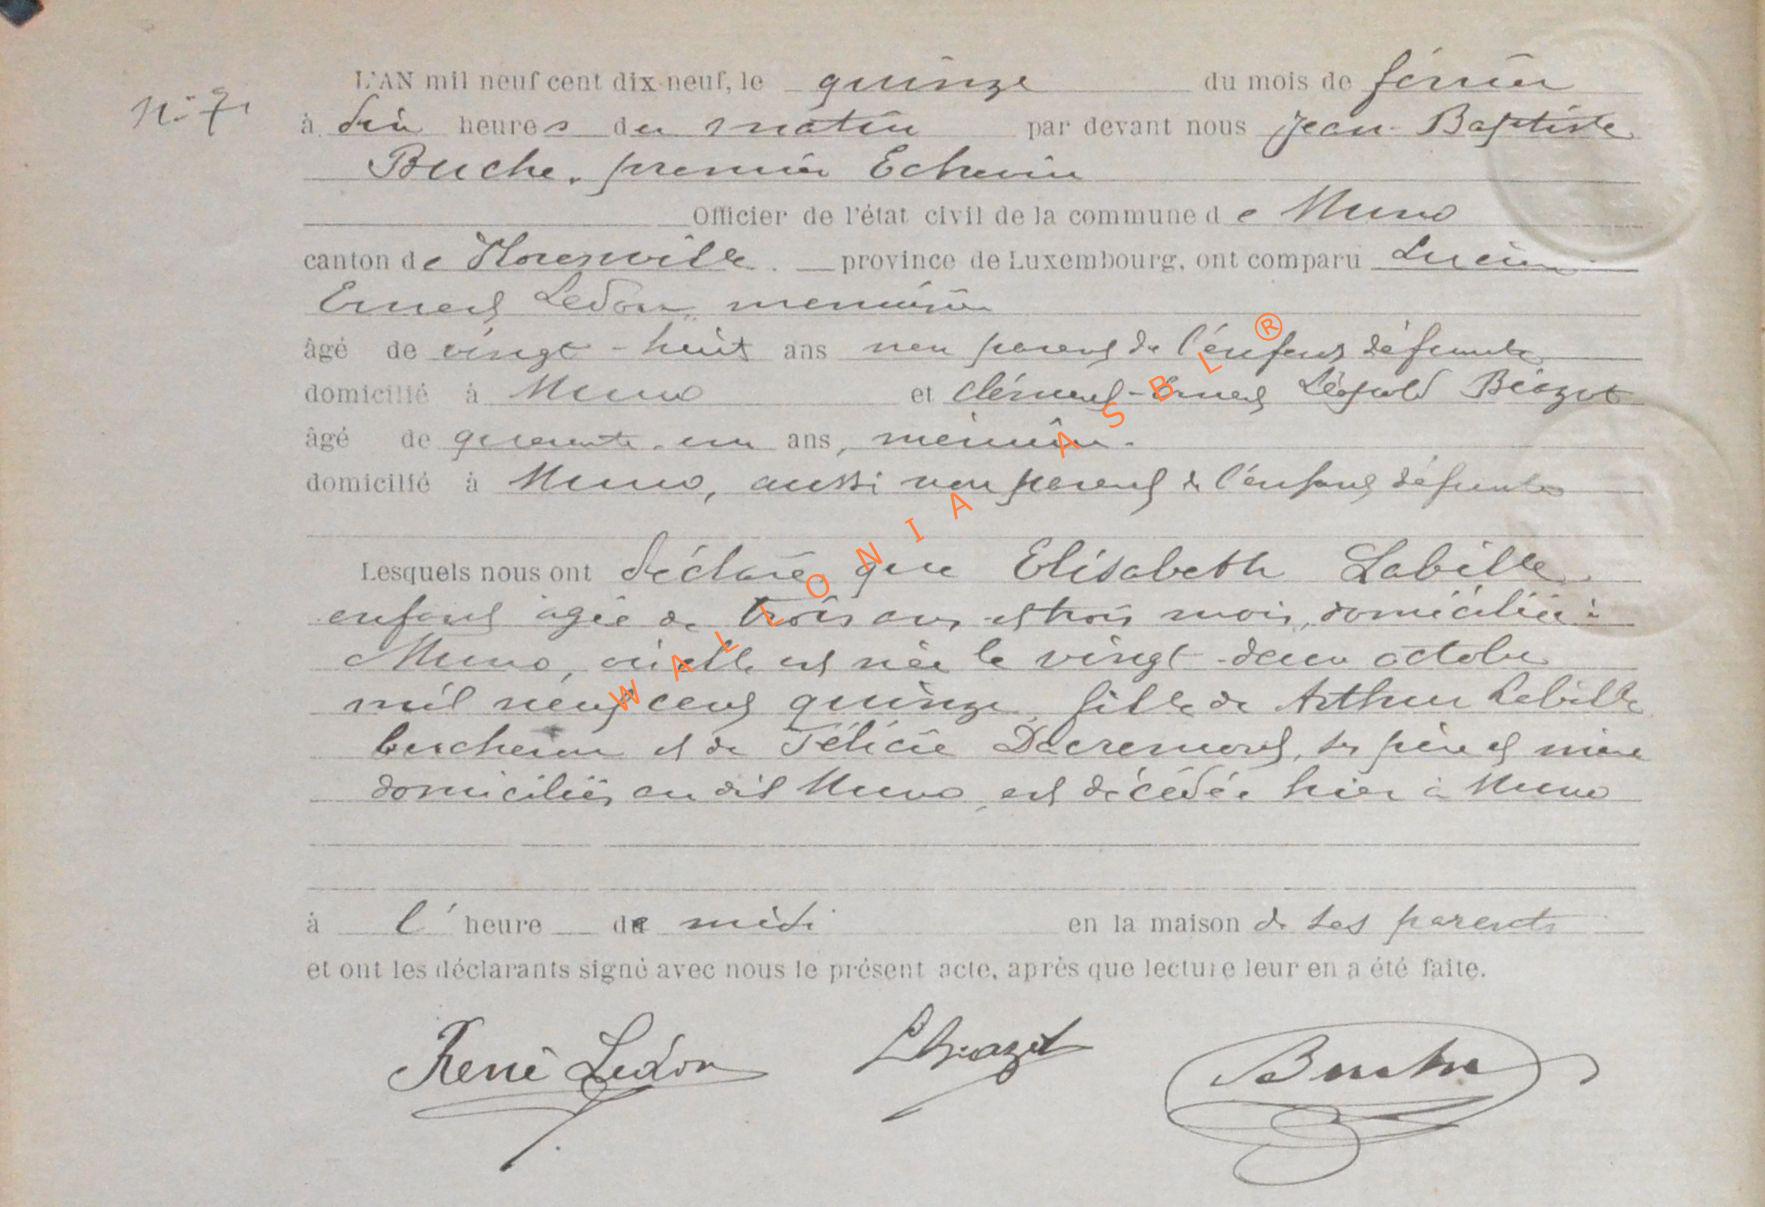 L'AN mil neuf cent dix-neuf, le quinze du mois de février
N° 7.
à dix heures du matin par devant nous Jean-Baptiste
Buche, premier Echevin
Officier de l'état civil de la commune de Muno
canton de Florenville. province de Luxembourg, ont comparu Lucien
Ernest Ledon, menuisier
âgé de vingt-huit ans non parent de l'enfant défunte
domicilié à Muno et Clément-Ernest Léopold Biazot
âgé de quarante-un ans, menuisier.
domicilié à Muno, aussi non parent de l'enfant défunte
Lesquels nous ont déclaré que Elisabeth Labille
enfant âgée de trois ans et trois mois, domiciliée à
Muno, où elle est née le vingt-deux octobre
mil neuf cent quinze, fille de Arthur Labille
bucheron et de Félicie Decremont, ses père et mère
domiciliés au dit Muno, est décédée hier à Muno
à l'heure de midi en la maison de ses parents
et ont les déclarants signé avec nous le présent acte, après que lecture leur en a été faite.
René Ledon Biazot Buche
WALLONIA ASBL ®